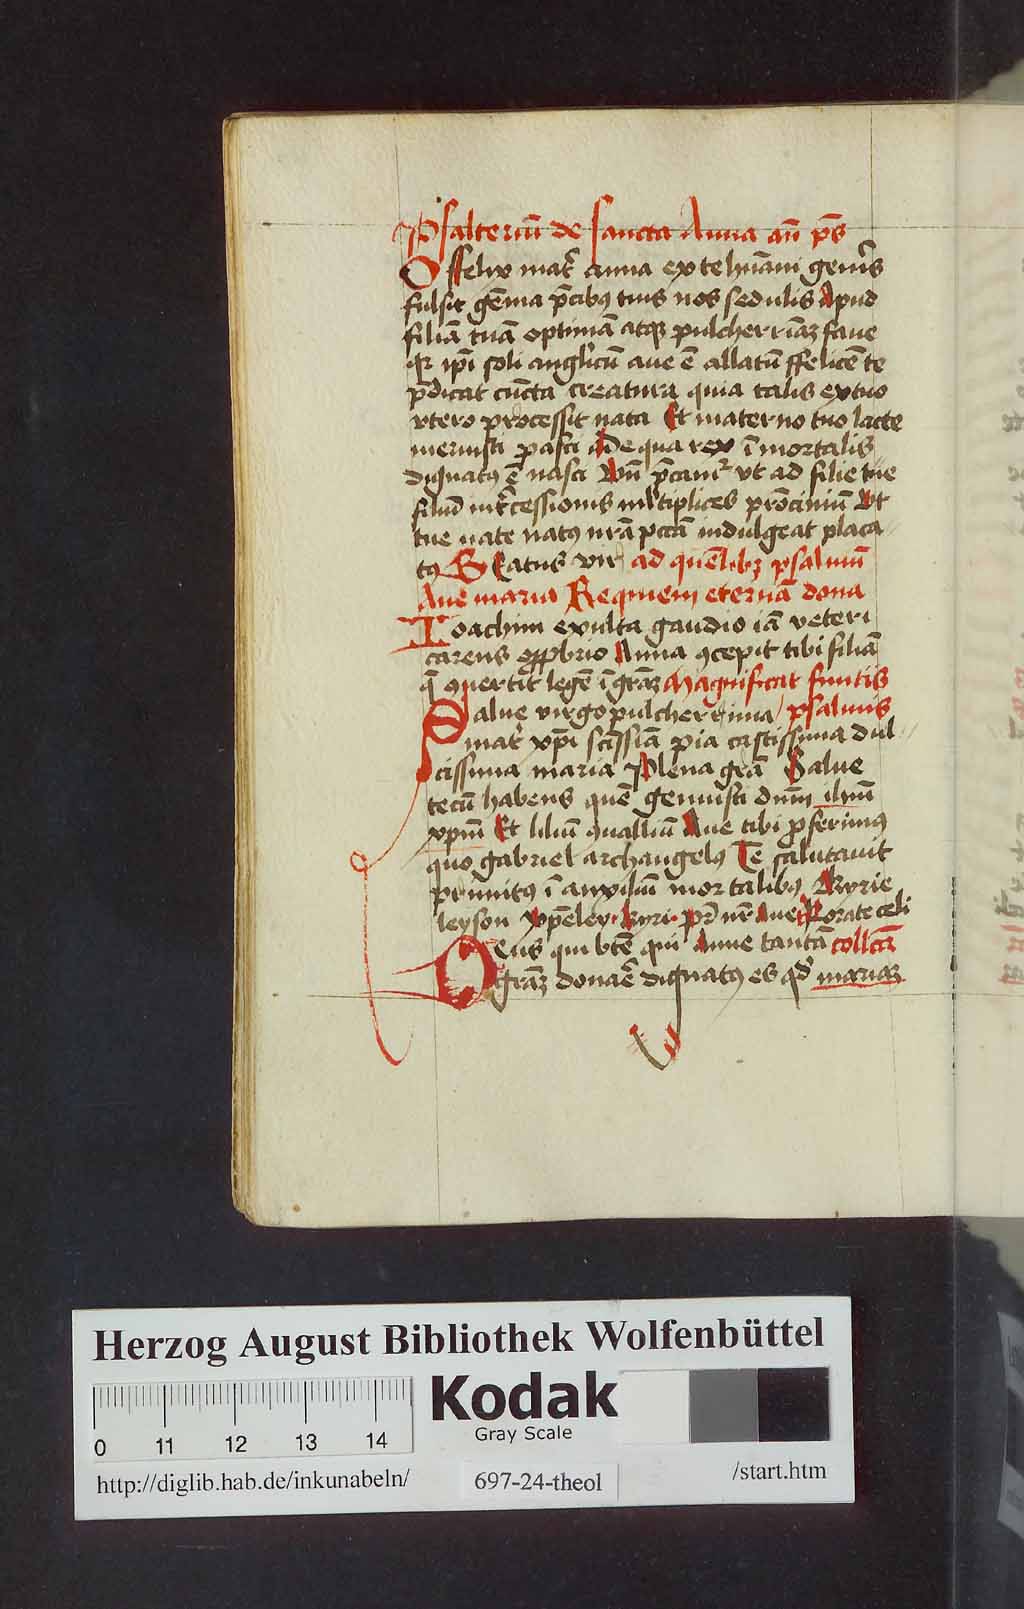 Psalteriū de sancta Anna añ p̄s
O ffelix mat̉ anna ex tehnāni gen̉is
fulsit gēma p̄cibꝯ tuis nos sedulis Apud
filiā tuā optimā atqꝫ pulcherriāꝫ faue
qꝛ ip̄i soli anglicū aue ē allatū ffelicē te
p̄dicat cūcta creatura quia talis ex tuo
vtero processit nata Et materno tuo lacte
meruisti pasci de qua rex īmortalis
dignatꝯ ē nasci Vn̄ p̄camꝛ vt ad filie tue
filiū int̉cessionis ml̉tiplices
tue nate natꝯ nrā pctā indulgeat placa
tꝯ BEatus vir ad quēlibꝫ psalmū
Aue maria Requiem eternā dona
Ioachim exulta gaudio iā veteri
carens opp̄brio Anna ꝯcepit tibi filiā
q̄ ꝯuertit legē ī grāꝫ Magnificat finitis
Salue virgo pulcherrima psalmis
mat̉ xp̄i scissiā pia castissima dul
cissima maria Plena grā Salue
tecū habens quē genuisti dnm̄ ihm̄
xpm̄ Et liliū ꝯualliū Aue tibi pferimꝯ
quo gabriel archangelꝯ Te salutauit
prīmitꝯ ī auxiliū mortalibꝯ Kyrie
leyson xp̄eley kyri pr̄ nr̄ Aue Rorate celi
DEus qui btē qui Anne tantā collcā
grāꝫ donaē̉ dignatꝯ es qd̉ mariaꝫ
Herzog August Bibliothek Wolfenbüttel
0 11 12 13 14
Kodak
Gray Scale
http://diglib.hab.de/inkunabeln/ 697-24-theol /start.htm